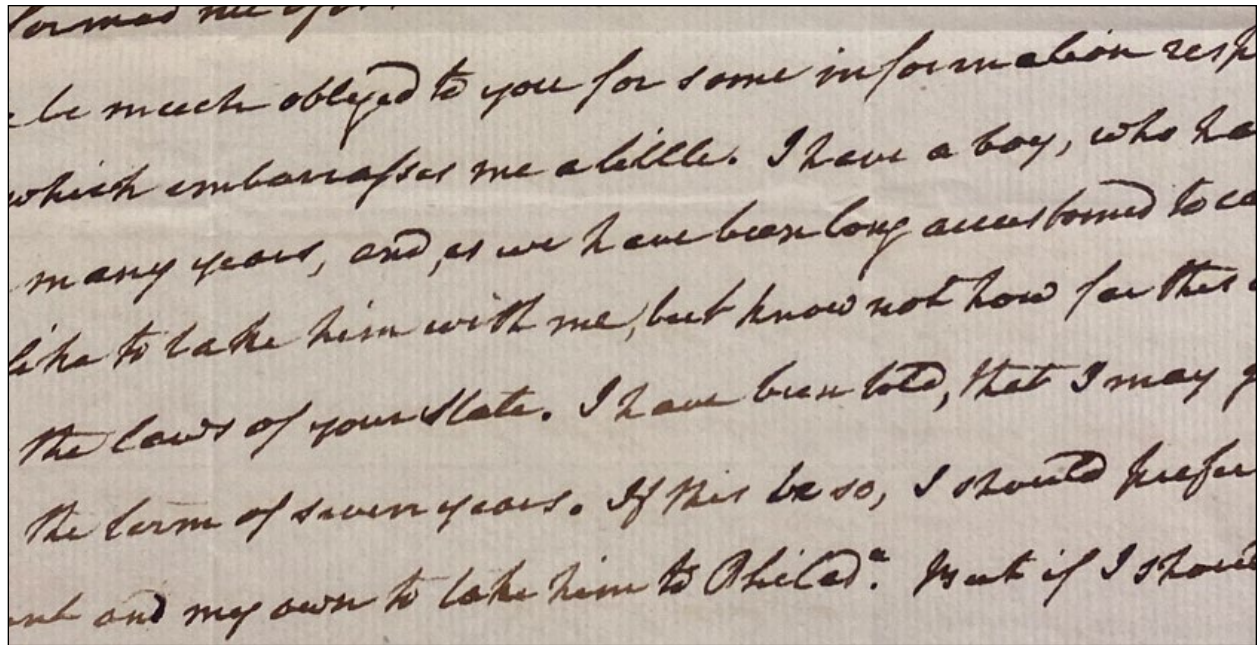 formed me of
be much obliged to you for some information resp
which embarrasses me a little. I have a boy, who ha
many years, and, as we have been long accustomed to ea
like to take him with me, but know not how far this
the laws of your State. I have been told, that I may
the term of seven years. If this be so, I should prefer
and my own to take him to Philad.ª But if I should